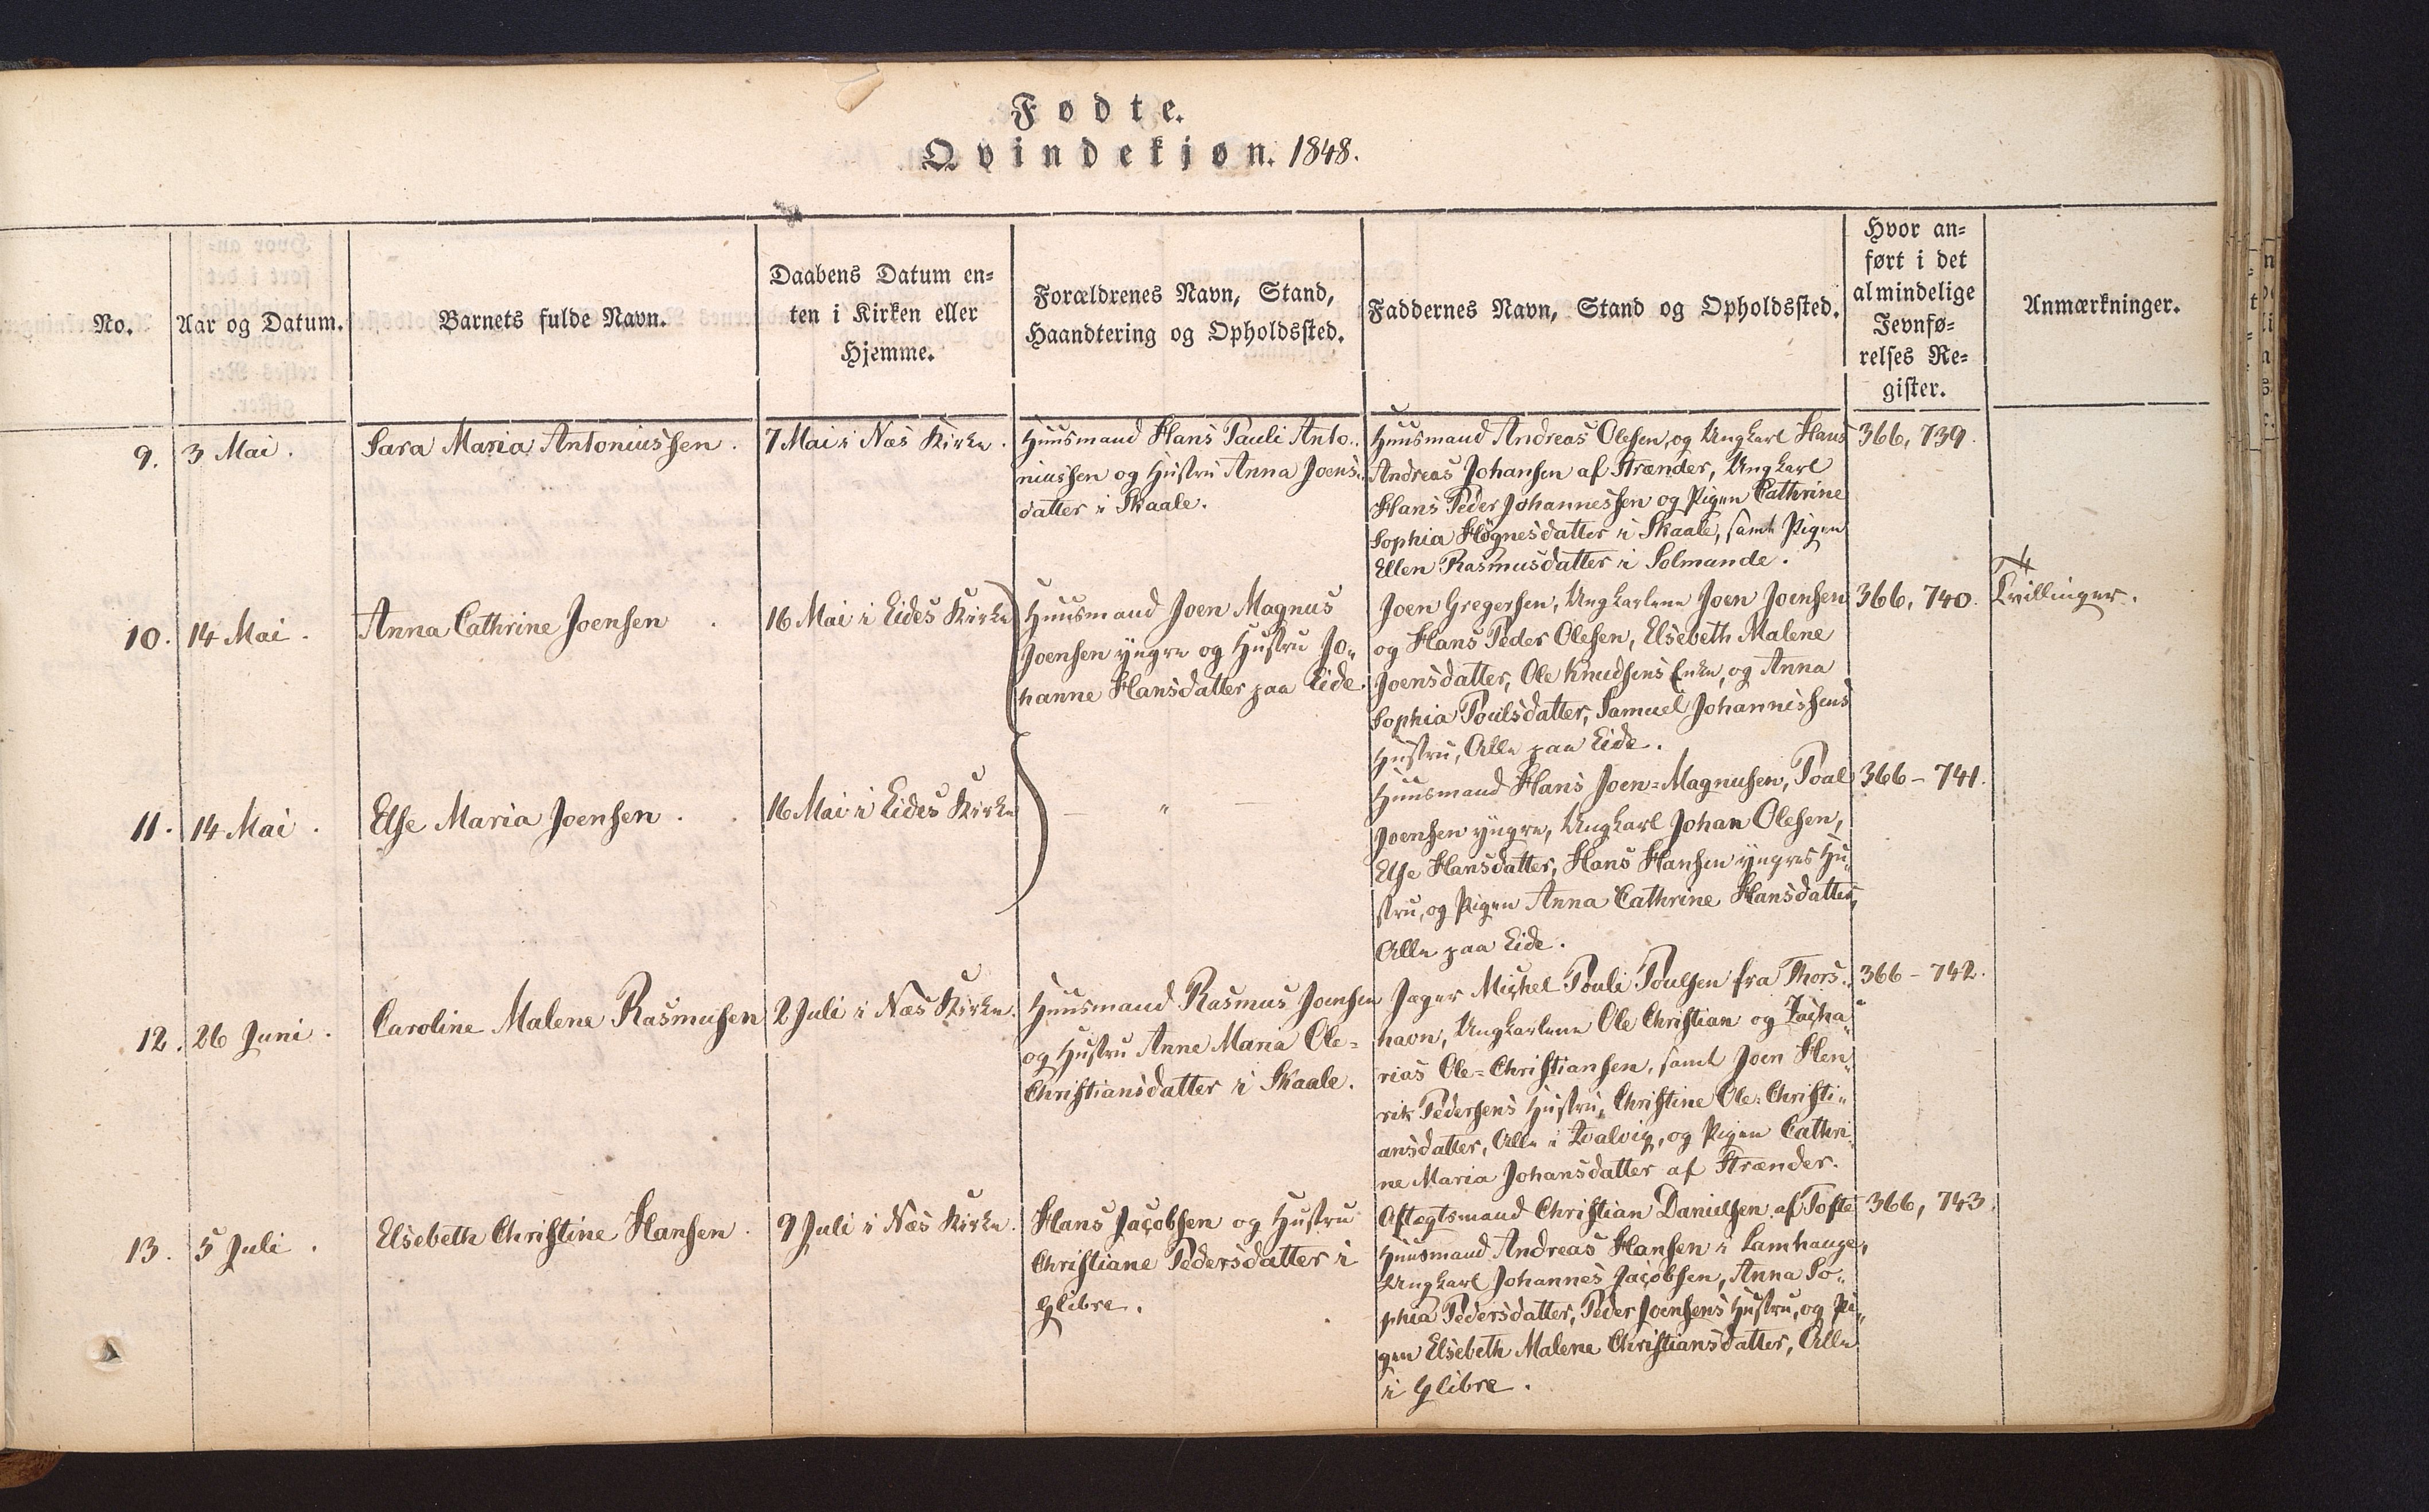 Fødte.
Qvindekjøn. 1848.
No.
Aar og Datum.
Barnets fulde Navn.
Daabens Datum en=
ten i Kirken eller
Hjemme.
Forældrenes Navn, Stand,
Haandtering og Opholdssted.
Faddernes Navn, Stand og Opholdssted.
Hvor an=
ført i det
almindelige
Jevnfø=
relses Re=
gister.
Anmærkninger.
9.
3 Mai.
Sara Maria Antoniussen.
7 Mai i Næs Kirke.
Huusmand Hans Pauli Anto„
niussen og Hustru Anna Joens„
datter i Skaale.
Huusmand Andreas Olesen, og Ungkarl Hans
Andreas Johansen af Strænder, Ungkarl
Hans Peder Johannessen og Pigen Cathrine
Sophia Høgnesdatter i Skaale, samt Pigen
Ellen Rasmusdatter i Solmunde.
366, 739.
10.
14 Mai.
Anna Cathrine Joensen
16 Mai i Eides Kirke
Huusmand Joen Magnus
Joensen yngre og Hustru Jo„
hanne Hansdatter paa Eide.
Joen Gregersen, Ungkarlene Joen Joensen
og Hans Peder Olesen, Elsebeth Malene
Joensdatter, Ole Knudsens Enke, og Anna
Sophia Poulsdatter, Samuel Johannessens
Hustru, Alle paa Eide.
366, 740.
Tvillinger.
11.
14 Mai.
Else Maria Joensen.
16 Mai i Eides Kirke
— „ —
Huusmand Hans Joen=Magnusen, Poal
Joensen yngre, Ungkarl Johan Olesen,
Else Hansdatter, Hans Hansen yngres Hu„
stru, og Pigen Anna Cathrine Hansdatter,
Alle paa Eide.
366 – 741.
12.
26 Juni.
Caroline Malene Rasmusen
2 Juli i Næs Kirke.
Huusmand Rasmus Joensen
og Hustru Anne Maria Ole=
Christiansdatter i Skaale.
Jæger Michel Pouli Poulsen fra Thors„
havn, Ungkarlene Ole Christian og Zacha„
rias Ole=Christiansen, samt Joen Hen„
rik Pedersens Hustru, Christine Ole=Christi„
ansdatter, Alle i Qvalvig, og Pigen Cathri„
ne Maria Johansdatter af Strænder.
366 – 742.
13.
5 Juli.
Elsebeth Christine Hansen.
9 Juli i Næs Kirke.
Hans Jacobsen og Hustru
Christiane Pedersdatter i
Glibre.
Aftægtsmand Christian Danielsen af Tofte
Huusmand Andreas Hansen i Lamhauge,
Ungkarl Johannes Jacobsen, Anna So„
phia Pedersdatter, Peder Joensens Hustru, og Pi„
gen Elsebeth Malene Christiansdatter, Alle
i Glibre.
366, 743.